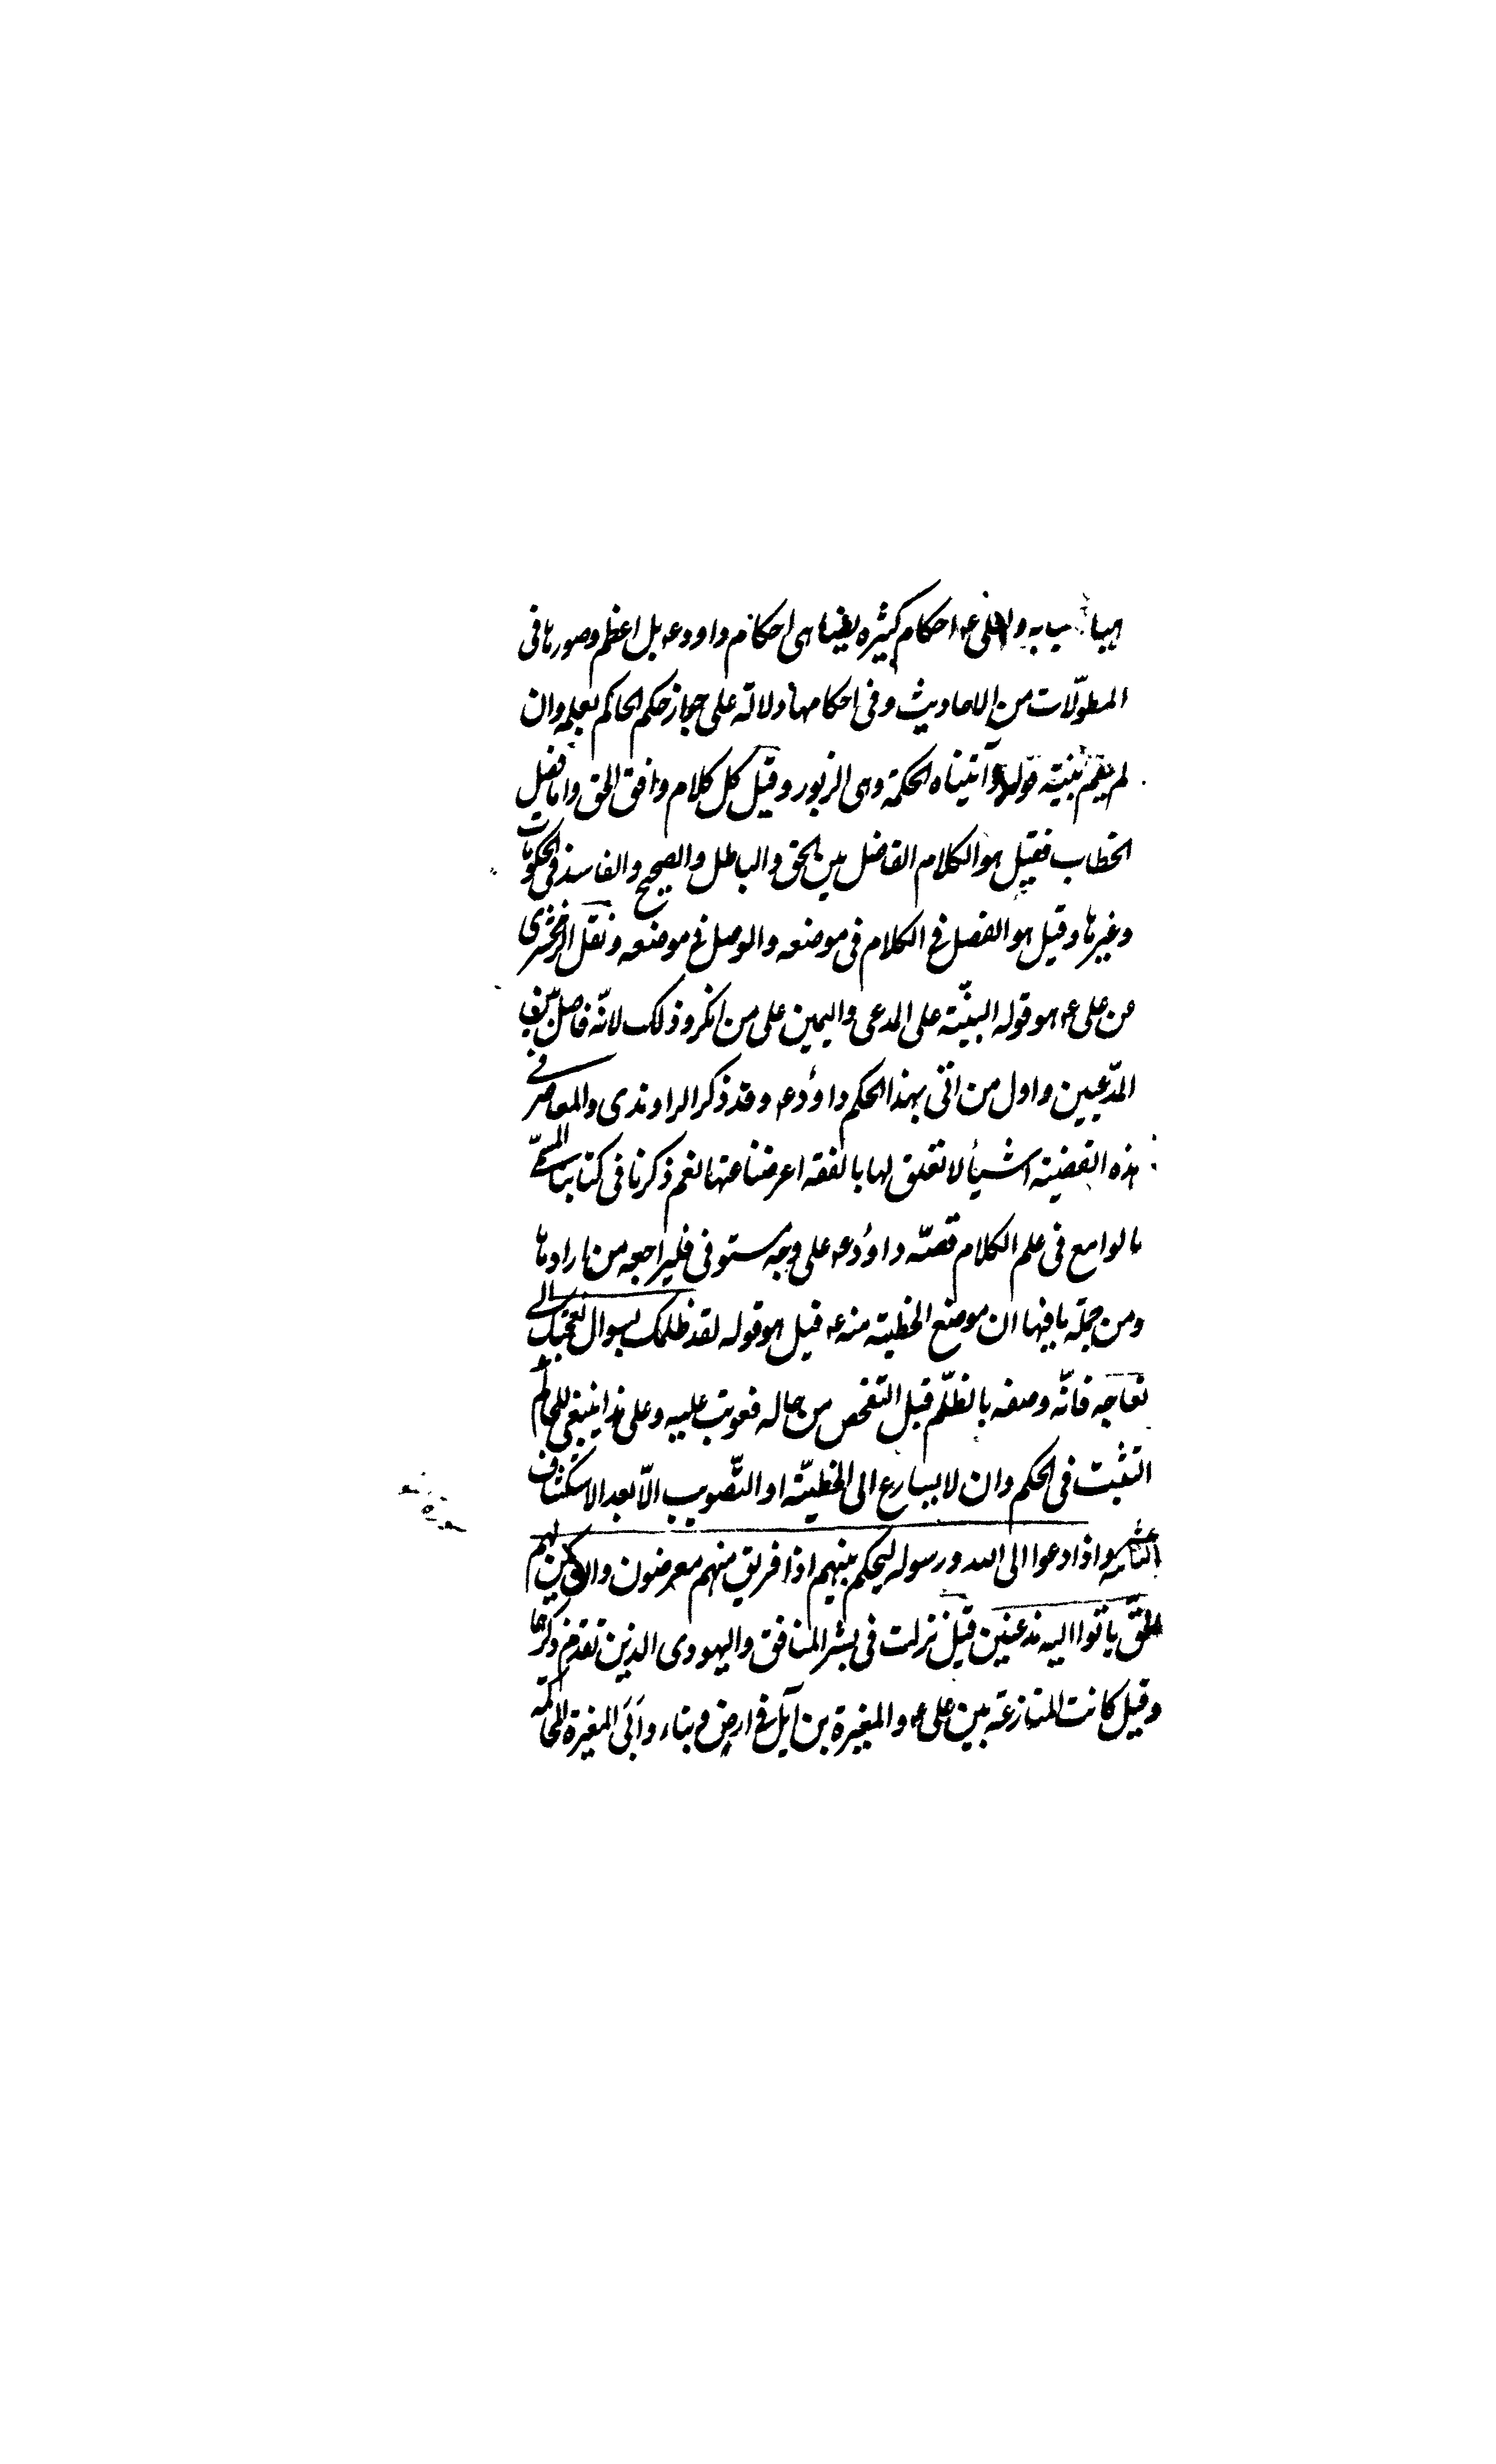 ولعلى ع احكام كثيرة يضاهى احكام داود ع بل اعظم وصورها فى
المطولّات من الاحاديث وفى احكامها دلالة على جواز حكم الحاكم بعلمه وان
لم يقم بينة قوله وآتيناه الحكمة وهى الزبور وقيل كل كلام وافق الحق واما فصل
الخطاب فقيل هو الكلام الفاصل بين الحق والباطل والصحيح والفاسد فى الحكومات
وغيرها وقيل هو الفصل فى الكلام فى موضعه والوصل فى موضعه ونقل الزمخشرى
عن على ع هو قوله البيّنة على المدعى واليمين على من انكر وذلك لانّه فاصل بين
المدّعيين واول من اتى بهذا الحكم داوُد ع وقد ذكر الراوندى والمعاصر فى
هذه القضية اشيأ لا تعلق لها بالفقه اعرضنا عنها نعم ذكرنا فى كتابنا المسمّى
بالوامع فى علم الكلام قصّة داوُد ع على وجه مستوفى فليراجعه من ارادها
ومن جملة ما فيها ان موضع الخطية منه ع قيل هو قوله لقد ظلمك بسوال نعجتك الى
نعاجه فانّه وصفه بالظلّم قبل التفحص من حاله فعوتب عليه وعلى هذا ينبغى للحاكم
التثبت فى الحكم وان لا يسارع الى الخطيّة او التّصويب الّا بعد الاستكشاف
الثامنة عشر واذا دعوا الى الله ورسوله ليحكم بينهم اذا فريق منهم معرضون وان يكن لهم
الحقّ ياتوا اليه مذعنين قيل نزلت فى بشر المنافق واليهودى الذين تقدم ذكرهما
وقيل كانت المنازعة بين على ع والمغيرة بن آيل فى ارض وبناء وابَى المغيرة المحاكمة